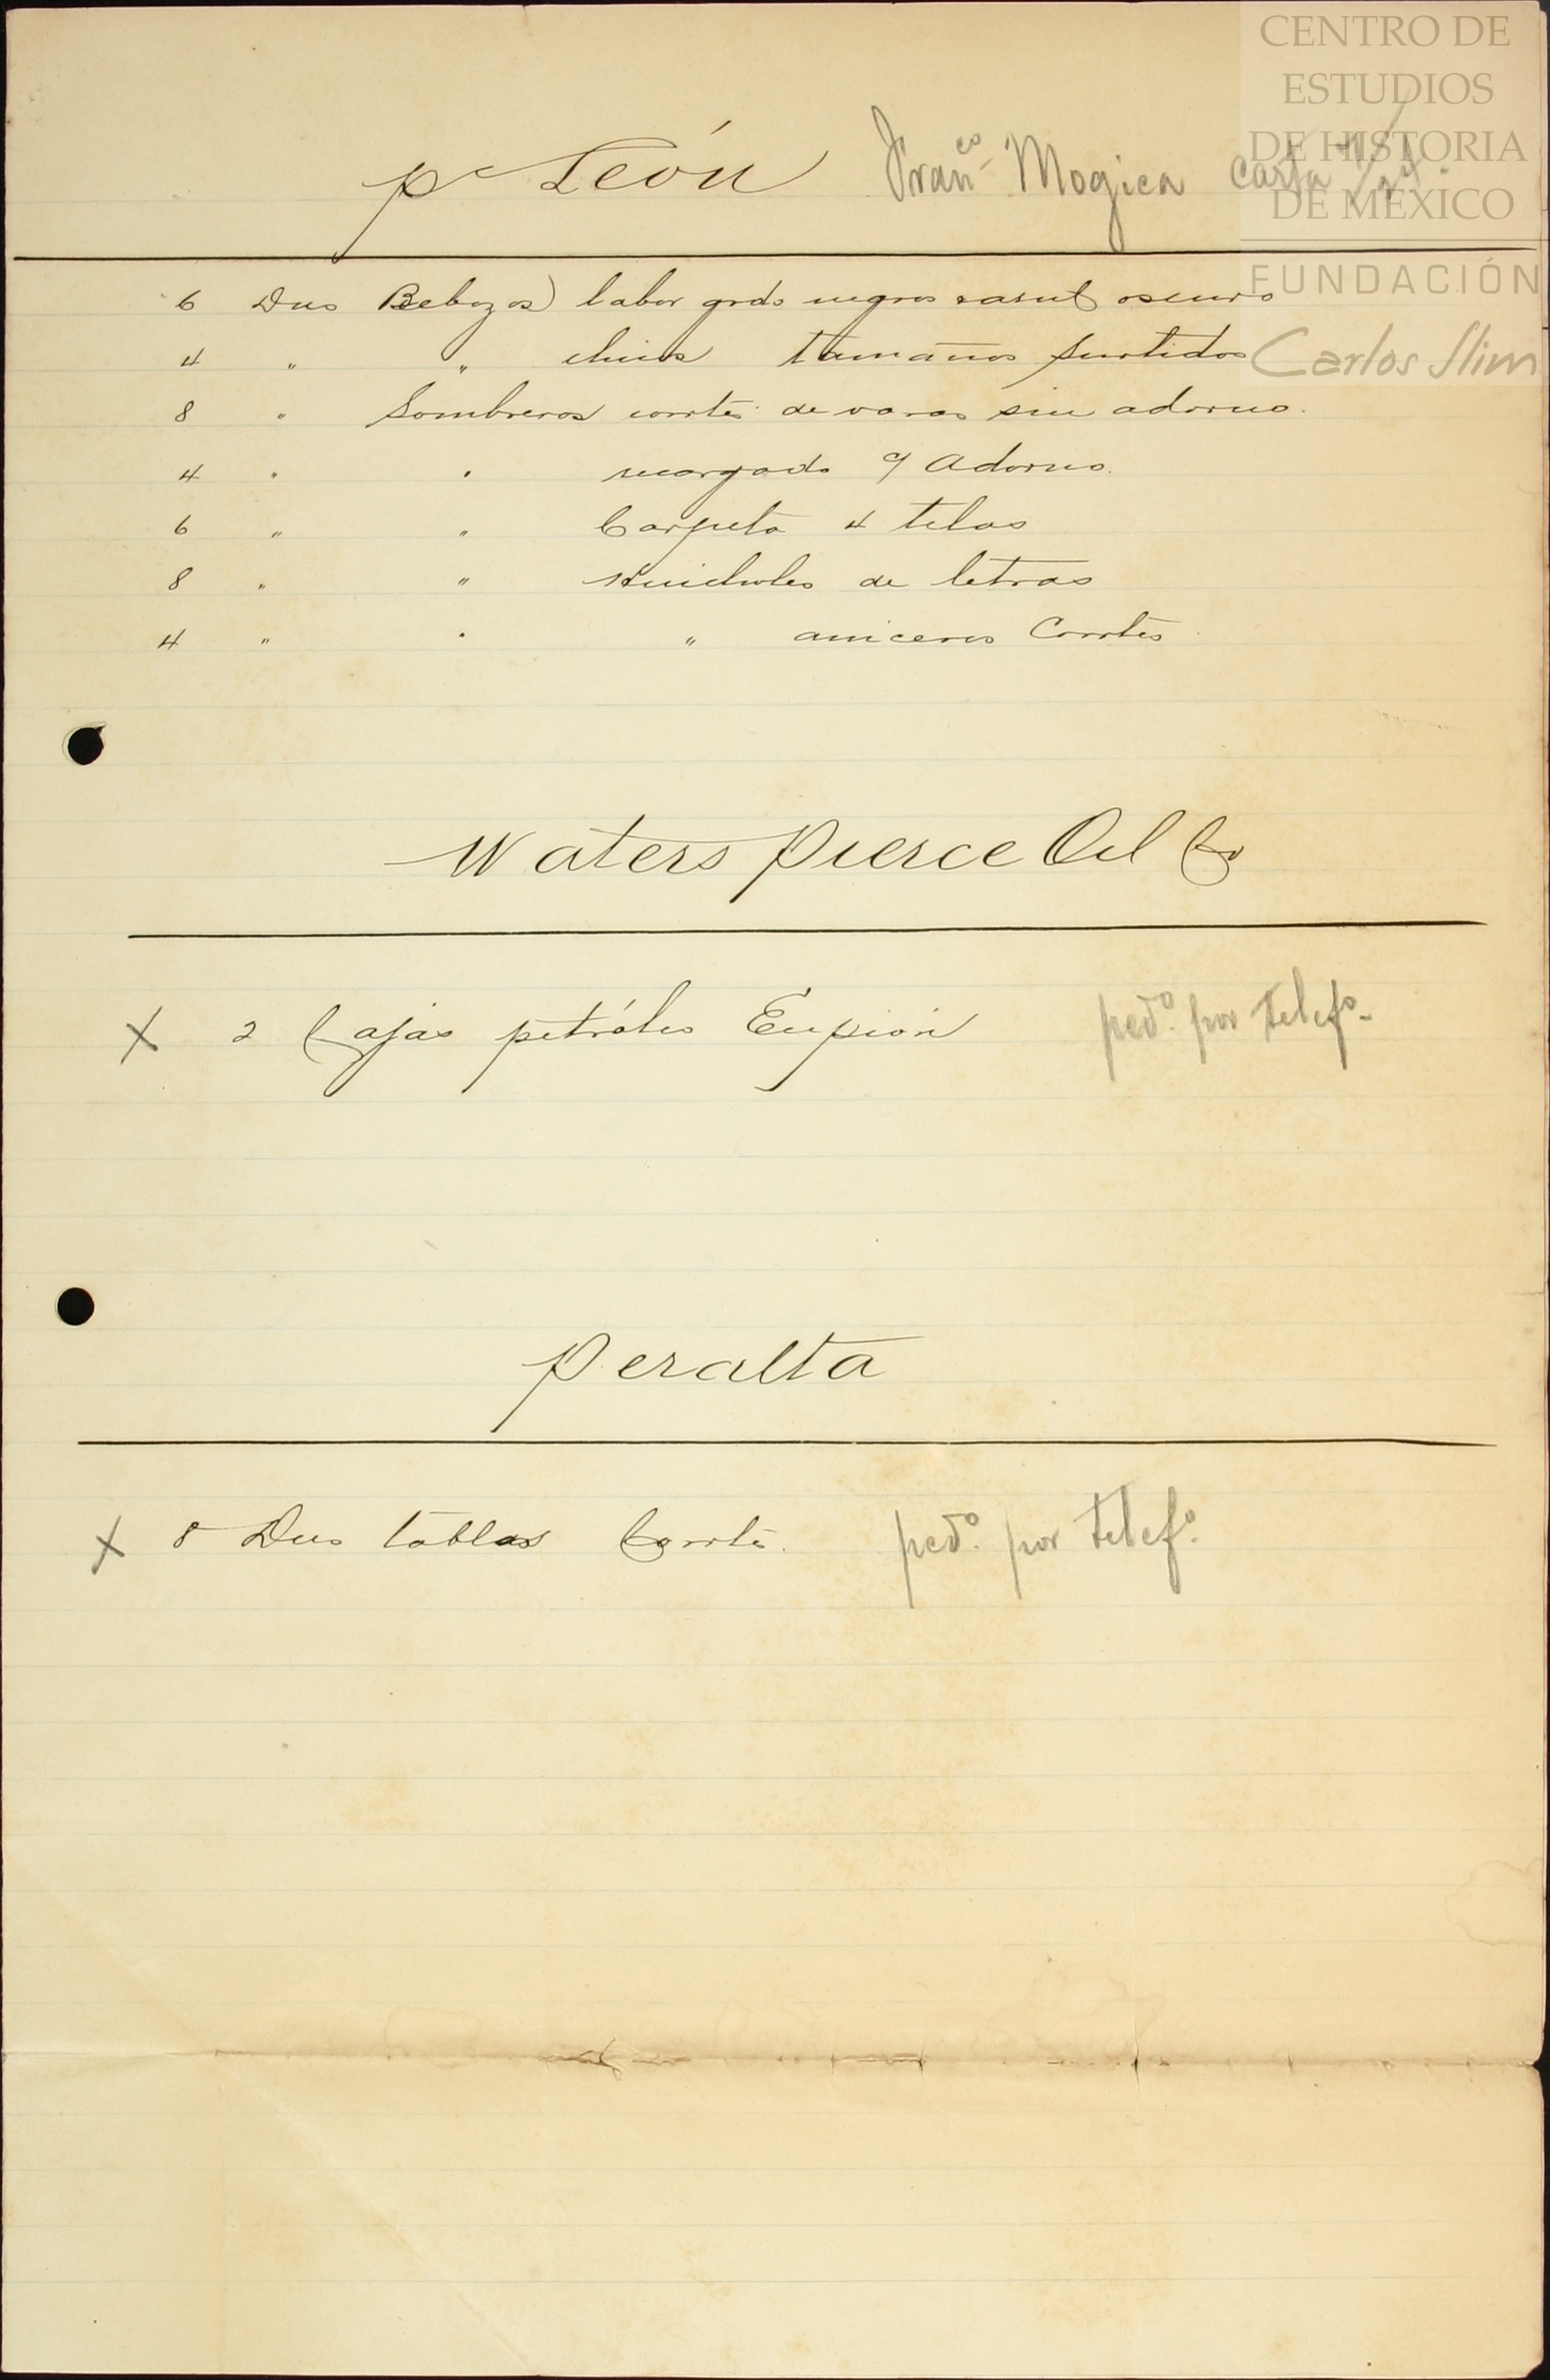 CENTRO DE
ESTUDIOS
DE HISTORIA
DE MÉXICO
FUNDACIÓN
Carlos Slim
p León Fran.co Mogica carta
6 Dns Rebozos labor grds negros azul oscuro
4 " " chicos tamaños surtidos
8 " Sombreros corrtes de varas sin adorno.
4 " " recargado c/ Adorno.
6 " " Carpeta 4 telas
8 " " Huicholes de letras
4 " " " Corrtes
Waters Pierce Oil Co
X 2 Cajas petróleo Eupión ped.o por telef.o
Peralta
X 8 Dns tablas Corrts. ped.o por telef.o